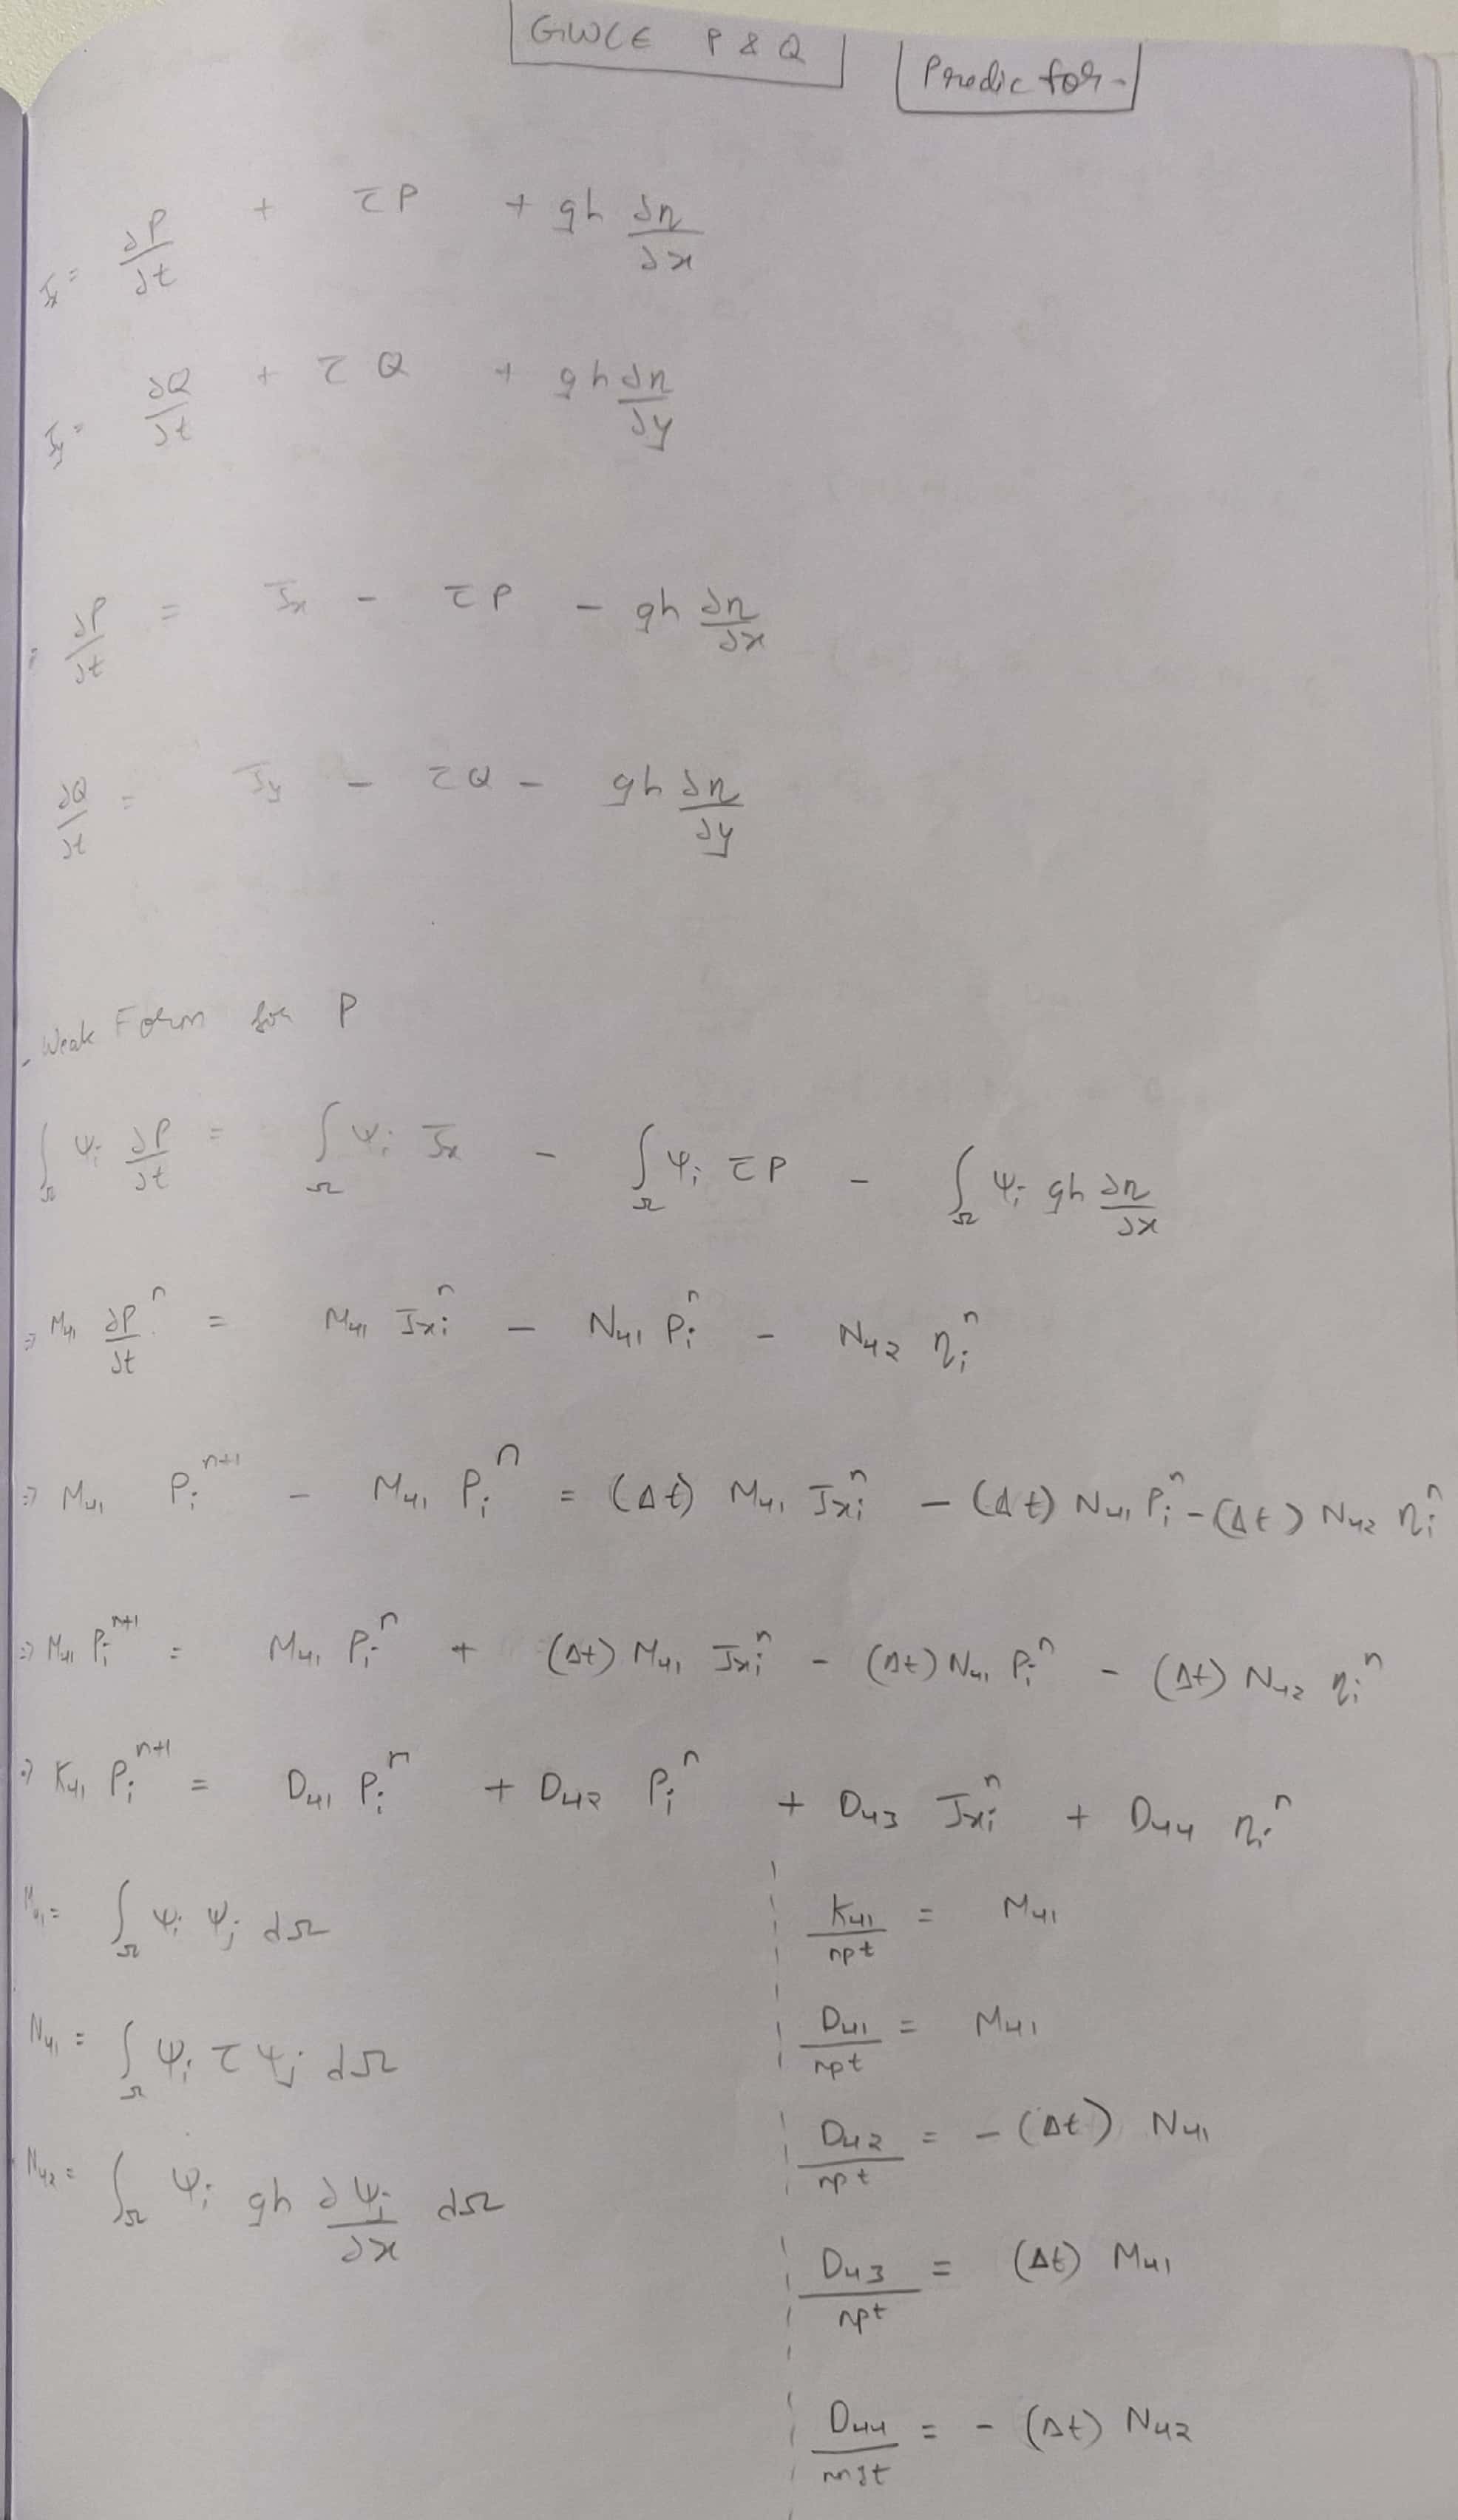 GWCE P & Q
Predictor-
Jx = ∂P/∂t + τP + gh ∂η/∂x
Jy = ∂Q/∂t + τQ + gh ∂η/∂y
⇒ ∂P/∂t = Jx - τP - gh ∂η/∂x
∂Q/∂t = Jy - τQ - gh ∂η/∂y
- Weak Form for P
∫_Ω ψi ∂P/∂t = ∫_Ω ψi Jx - ∫_Ω ψi τP - ∫_Ω ψi gh ∂η/∂x
⇒ M41 ∂P/∂t^n = M41 Jxi^n - N41 Pi^n - N42 ηi^n
⇒ M41 Pi^n+1 - M41 Pi^n = (Δt) M41 Jxi^n - (Δt) N41 Pi^n - (Δt) N42 ηi^n
⇒ M41 Pi^n+1 = M41 Pi^n + (Δt) M41 Jxi^n - (Δt) N41 Pi^n - (Δt) N42 ηi^n
⇒ K41 Pi^n+1 = D41 Pi^n + D42 Pi^n + D43 Jxi^n + D44 ηi^n
M41 = ∫_Ω ψi ψj dΩ
N41 = ∫_Ω ψi τ ψj dΩ
N42 = ∫_Ω ψi gh ∂ψj/∂x dΩ
K41/npt = M41
D41/npt = M41
D42/npt = - (Δt) N41
D43/npt = (Δt) M41
D44 = - (Δt) N42